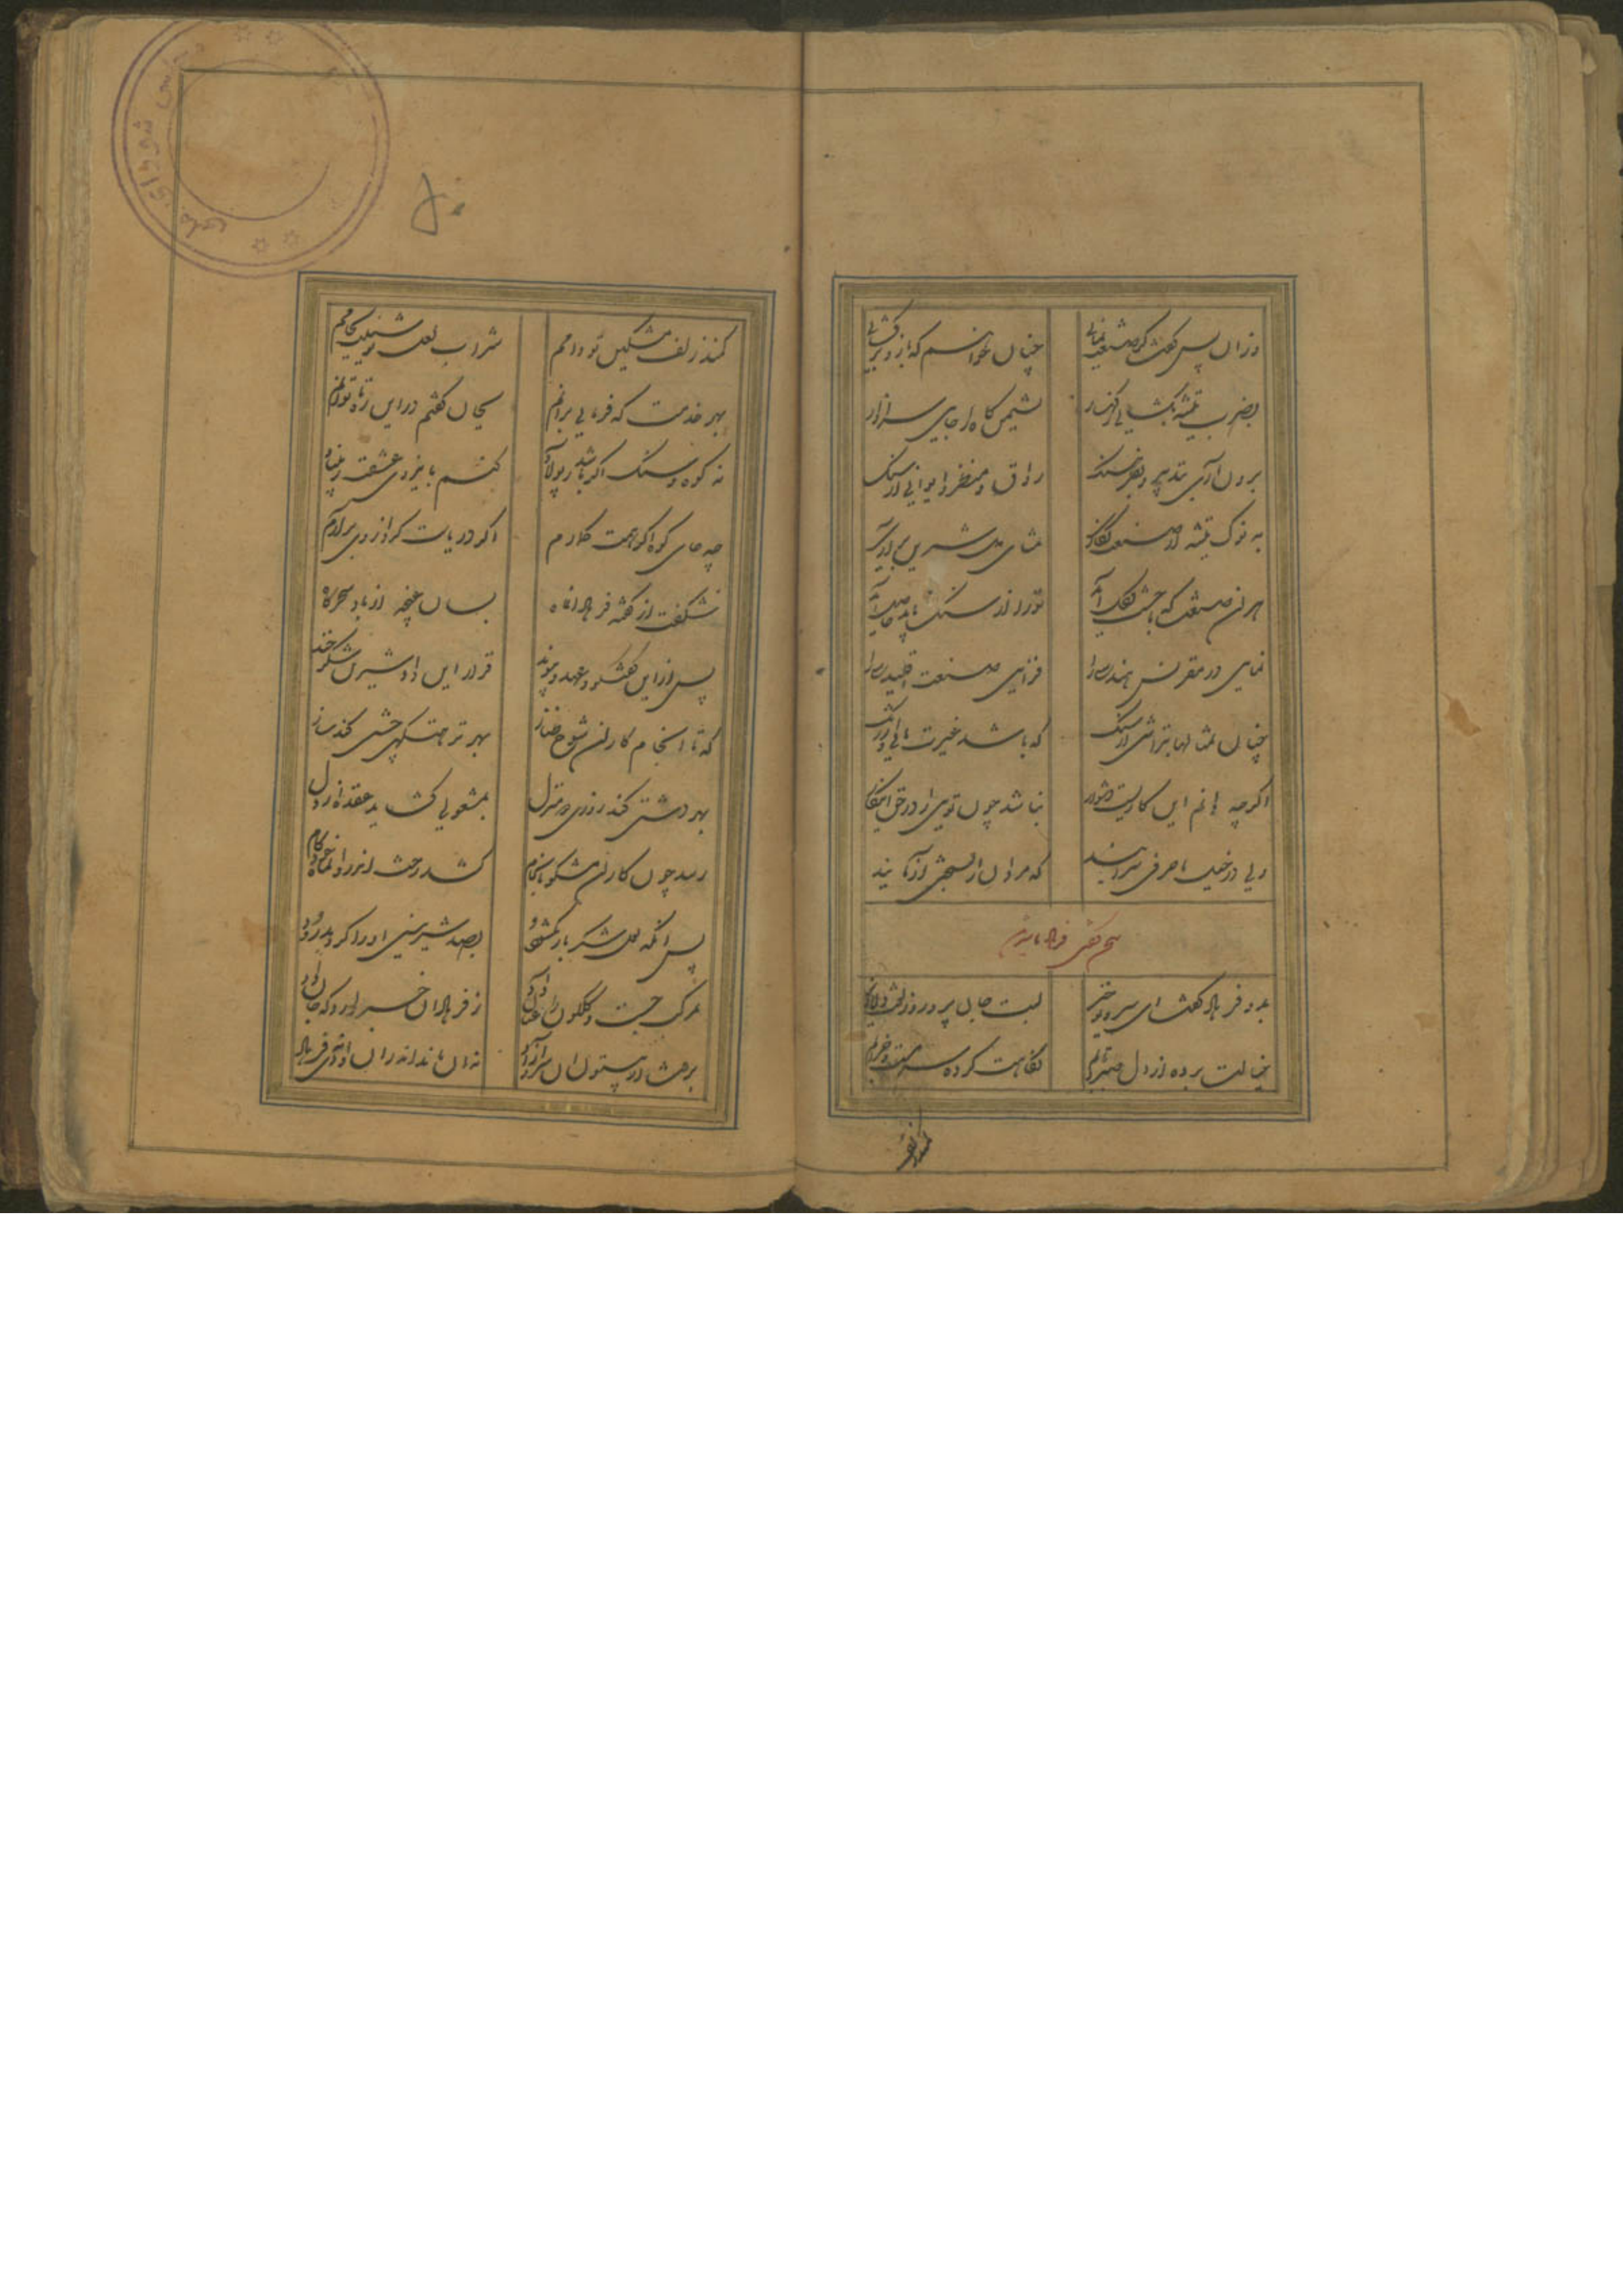 وزان پس گفت کز صنعت نمائی چنان خواهم که بازو برگشائی
بضرب تیشه بگشائی ز کهسار نشیمن گاه را جای سزاوار
برون آری بتدبیر و بفرهنگ رواق و منظر و ایوانی از سنگ
به نوک تیشه از صنعت نگاری مثالی شیرین برآری
هر آن صنعت که با خشت و گل آید تو را از سنگ باید حاصل آید
نمایی در مقرنس هندسی را فزایی صنعت اقلیدسی را
چنان تمثالها بتراشی از سنگ که باشد غیرت مانی و ارژنگ
اگرچه دانم این کاریست دشوار نباشد چون تویی را درخور این کار
ولی در خیل ما حرفی سرایند که مردان را بسختی آزمایند
سخن گفتن فرهاد با شیرین
بدو فرهاد گفت ای سرو لبت جان پرور و زلفت
خیالت برده از دل صبر و تابم نگاهت کرده سر مست و خرابم
کمند زلف مشکین تو دامم شراب لعل نوشینت بجامم
بهر خدمت که فرمایی برانم بجان کوشم در این ره تا توانم
نه کوه و سنگ اگر باشد ز پولاد کنم با نیروی عشقت ز بنیاد
چه جای کوه اگر همت گمارم اگر دریاست گرد از وی برآرم
شکفت از گفته فرهاد آن ماه بسان غنچه از باد سحرگاه
پس از این گفتگو و عهد و پیوند قرار این داد شیرین شکرخند
که تا انجام کار آن شوخ طناز بهر نزهتگهی جشنی کند ساز
بهر دشتی کند روزی دو منزل بمشغولی گشاید عقده از دل
رسد چون کار آن مشکو بانجام کشد رخت اندر او ناکام و خودکام
پس آنگه لعل شکر بار بگشود بصد شیرینی او را کرد بدرود
بمرکب جست و گلگون را عنان داد ز فرهاد آن خبر دارد که جان داد
برفت از بیستون آن سرو آزاد نه آن ماند اندر آن وادی نه فرهاد